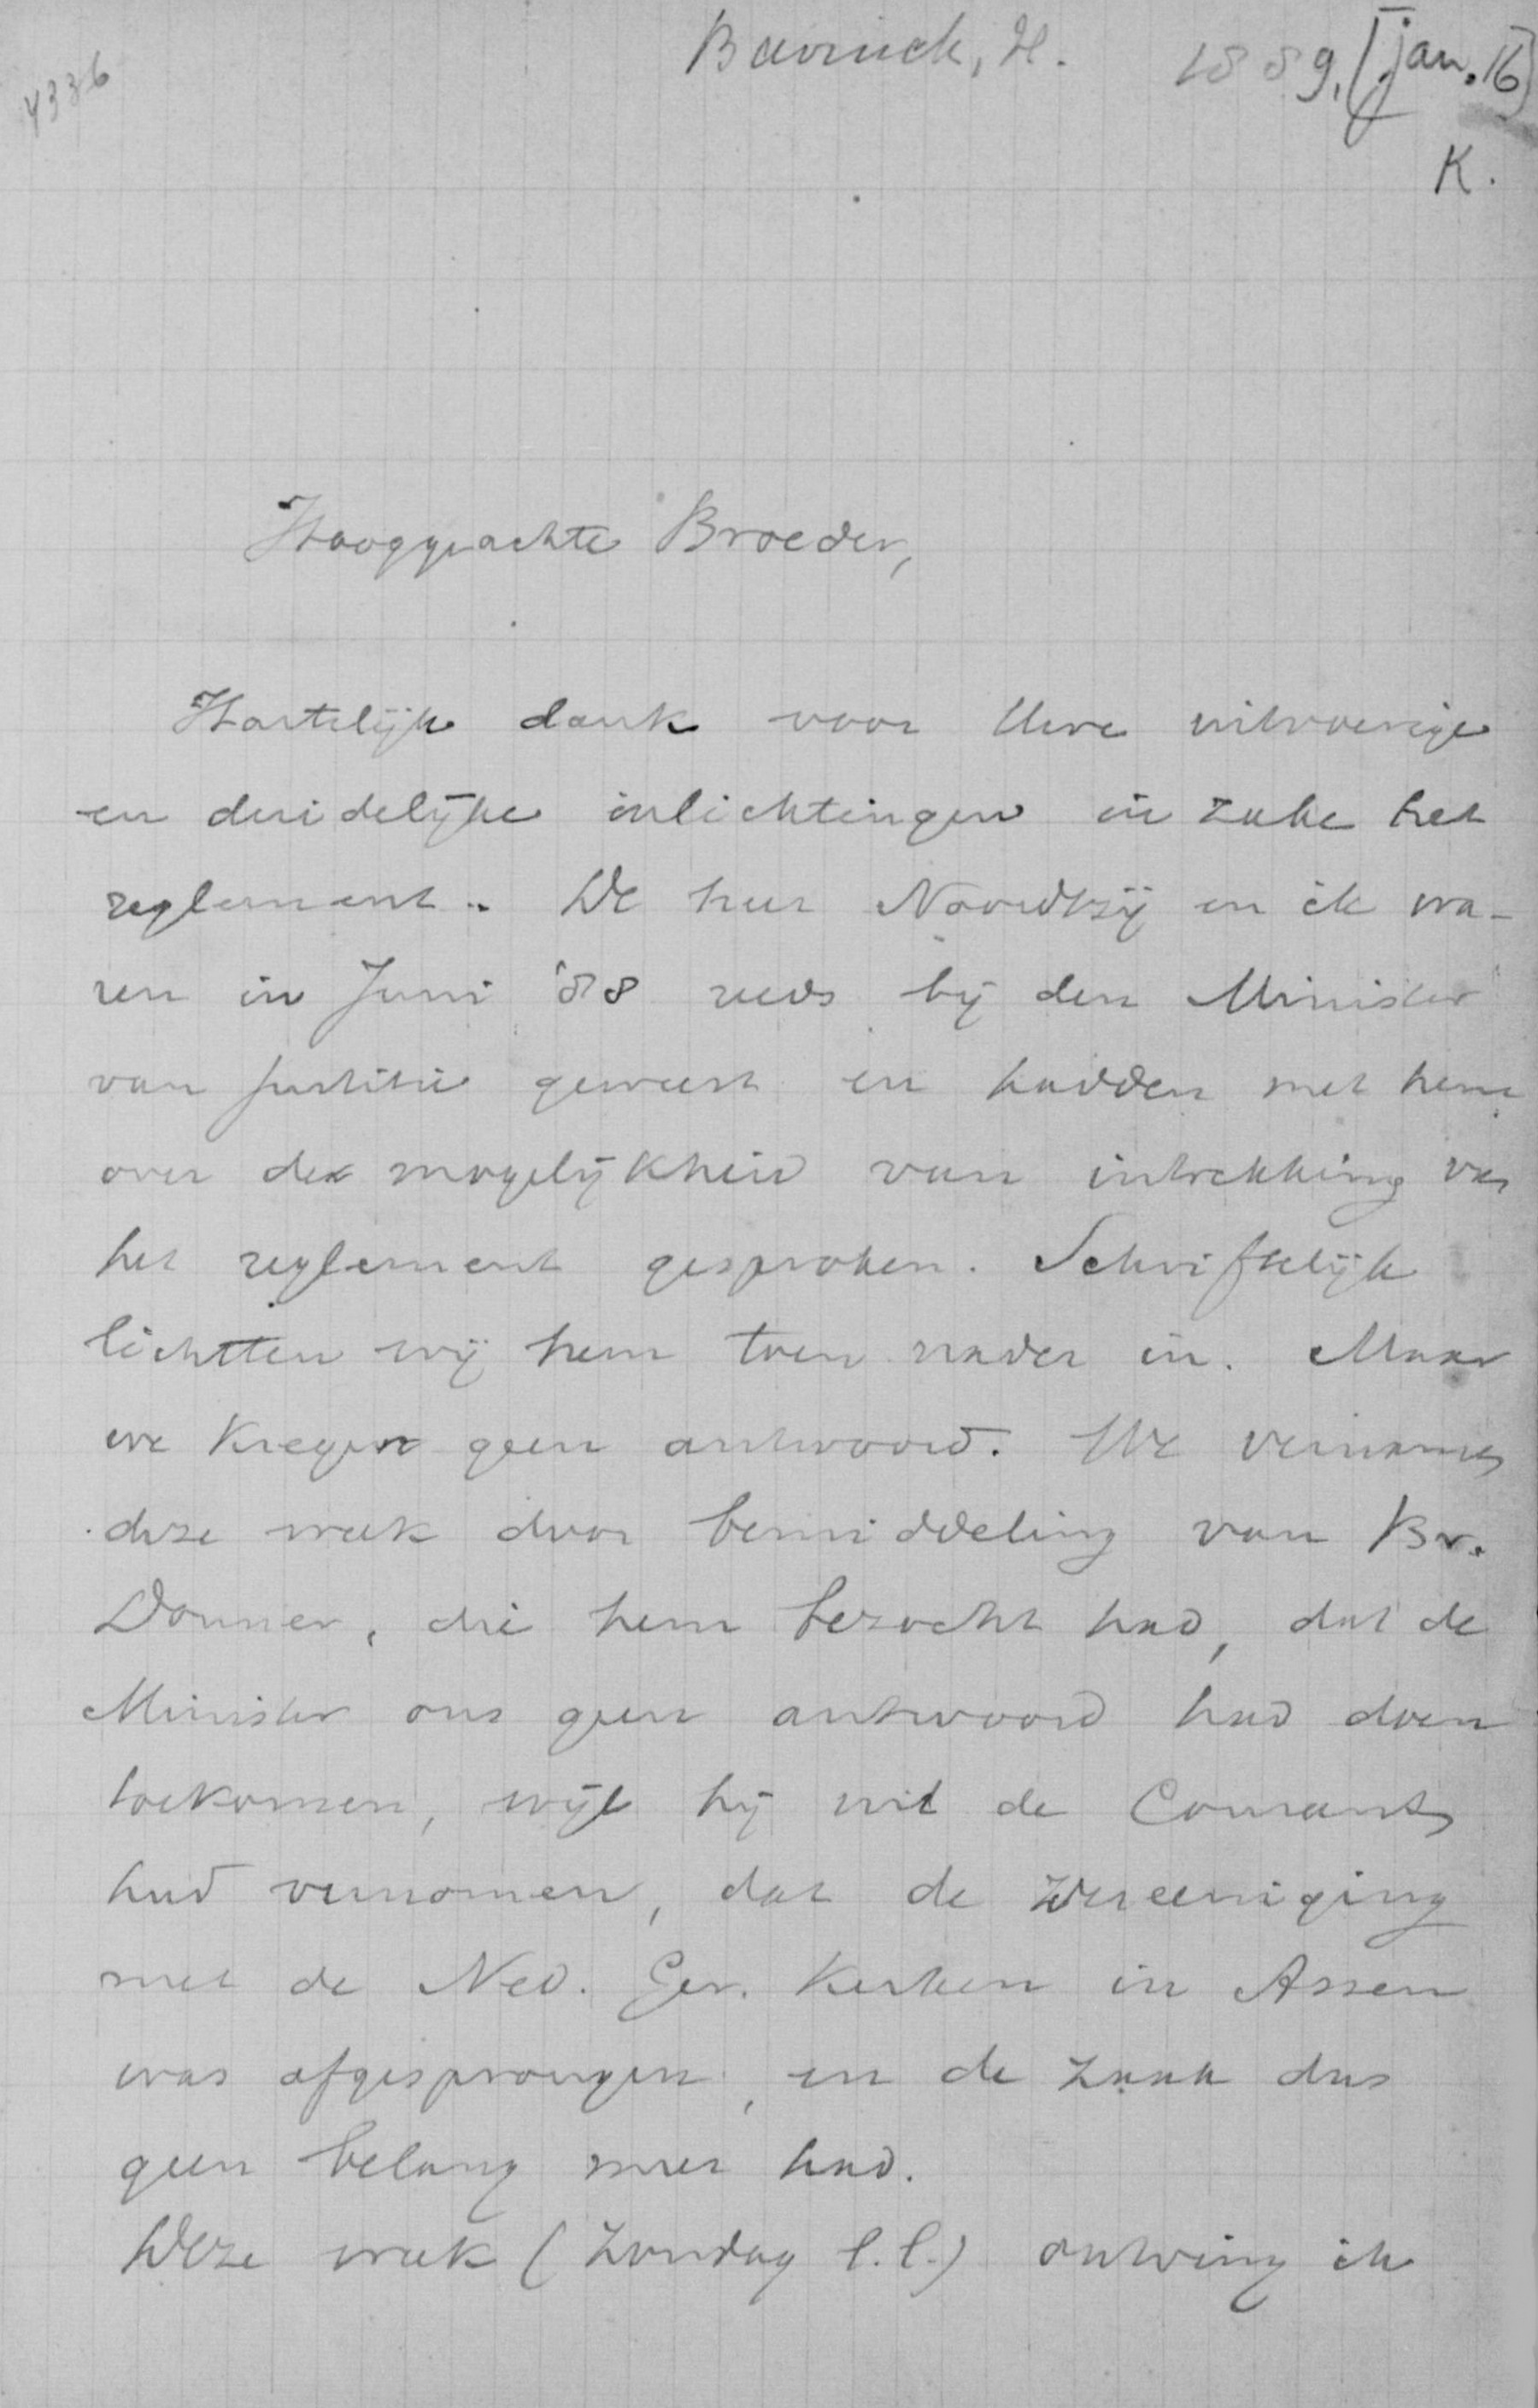 4336
Bavinck, H. 1889, [jan. 16]
K.
Hooggeachte Broeder,
Hartelijk dank voor Uwe uitvoerige
en duidelijke inlichtingen in zake het
reglement. De heer Noordtzij en ik wa-
ren in Juni '88 reeds bij den Minister
van Justitie geweest en hadden met hem
over de mogelijkheid van intrekking van
het reglement gesproken. Schriftelijk
lichtten wij hem toen nader in. Maar
we kregen geen antwoord. We vernamen
deze week door bemiddeling van Br.
Donner, die hem bezocht had, dat de
Minister ons geen antwoord had doen
toekomen, wijl hij uit de Couranten
had vernomen, dat de vereeniging
met de Ned. Ger. Kerken in Assen
was afgesprongen, en de zaak dus
geen belang meer had.
Deze week (Zondag l.l.) ontving ik